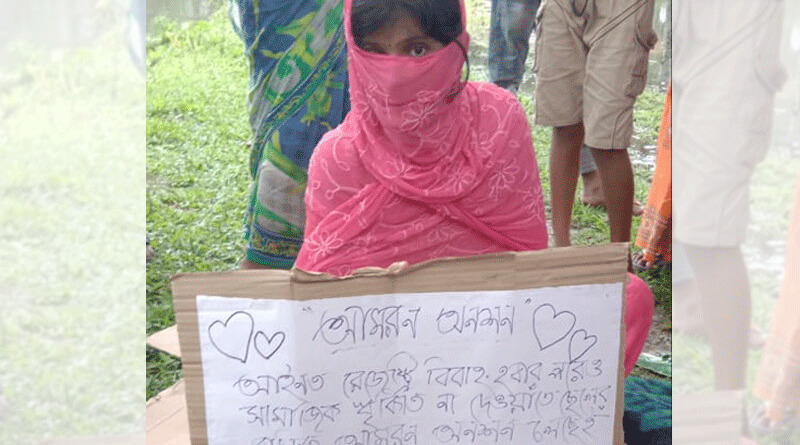 "আমরন অনশন"
আইনত রেজেষ্ট্রি বিবাহ হবার পরও
সামাজিক স্বীকৃতি না দেওয়াতে ছেলের
আমরন অনশন চলছে